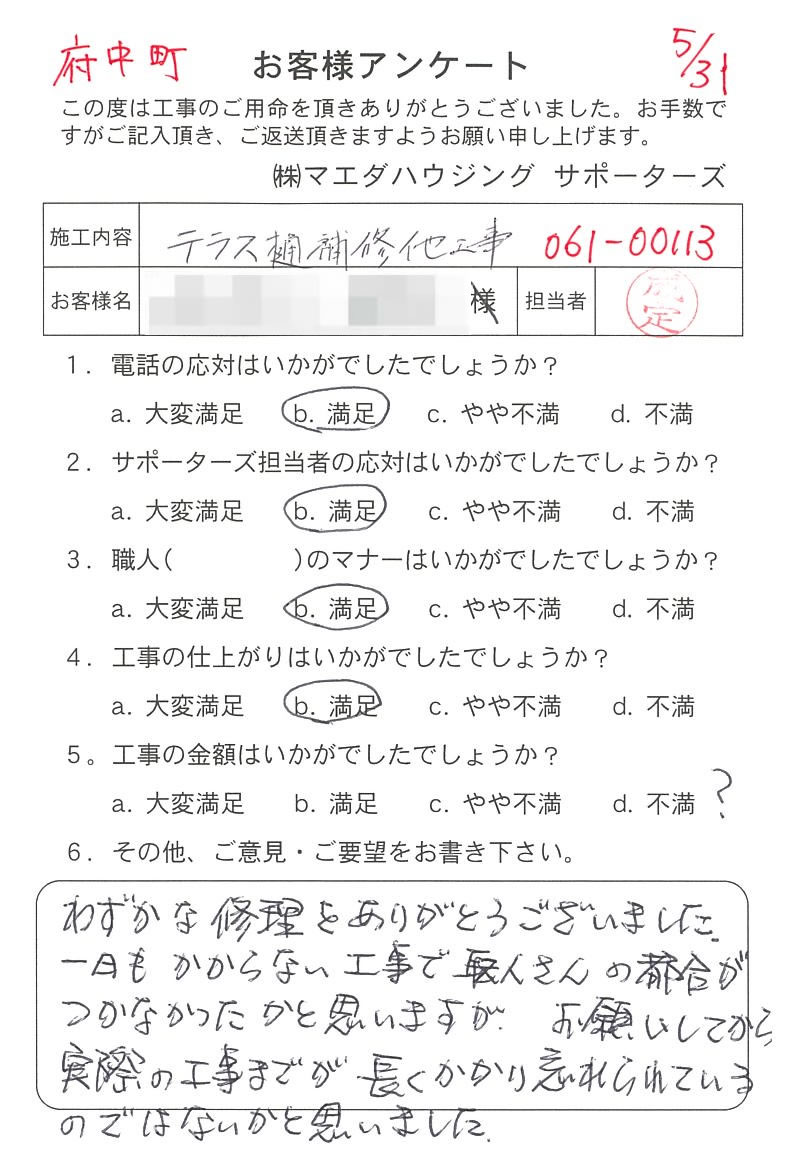 府中町 お客様アンケート 5/31
この度は工事のご用命を頂きありがとうございました。お手数で
すがご記入頂き、ご返送頂きますようお願い申し上げます。
㈱マエダハウジング サポーターズ
施工内容 テラス樋補修他工事 061-00113
お客様名 様 担当者
1. 電話の応対はいかがでしたでしょうか?
a. 大変満足 b. 満足 c. やや不満 d. 不満
2. サポーターズ担当者の応対はいかがでしたでしょうか?
a. 大変満足 b. 満足 c. やや不満 d. 不満
3. 職人( )のマナーはいかがでしたでしょうか?
a. 大変満足 b. 満足 c. やや不満 d. 不満
4. 工事の仕上がりはいかがでしたでしょうか?
a. 大変満足 b. 満足 c. やや不満 d. 不満
5。工事の金額はいかがでしたでしょうか?
a. 大変満足 b. 満足 c. やや不満 d. 不満 ?
6. その他、ご意見・ご要望をお書き下さい。
わずかな修理をありがとうございました.
一日もかからない工事で職人さんの都合が
つかなかったかと思いますが. お願いしてから
実際の工事までが長くかかり忘れられている
のではないかと思いました.